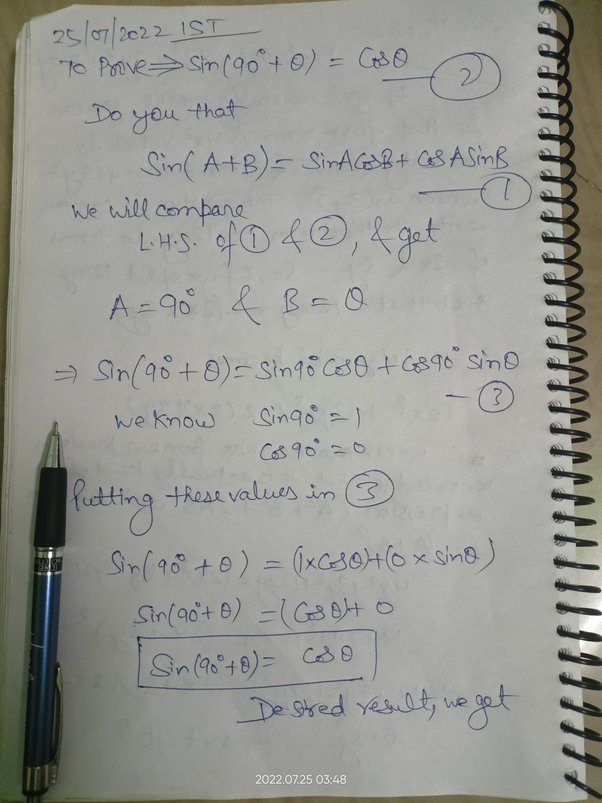 25/07/2022 IST
To Prove ⇒ Sin(90° + θ) = Cosθ — ②
Do you that
Sin(A+B) = SinACosB + CosASinB
— ①
We will compare
L.H.S. of ① & ②, & get
A = 90° & B = θ
⇒ Sin(90° + θ) = Sin90° Cosθ + Cos90° Sinθ
— ③
We know Sin90° = 1
Cos90° = 0
Putting these values in ③
Sin(90° + θ) = (1×Cosθ)+(0 × Sinθ)
Sin(90°+θ) = (Cosθ)+ 0
Sin(90°+θ) = Cosθ
Desired result, we get
2022.07.25 03:48